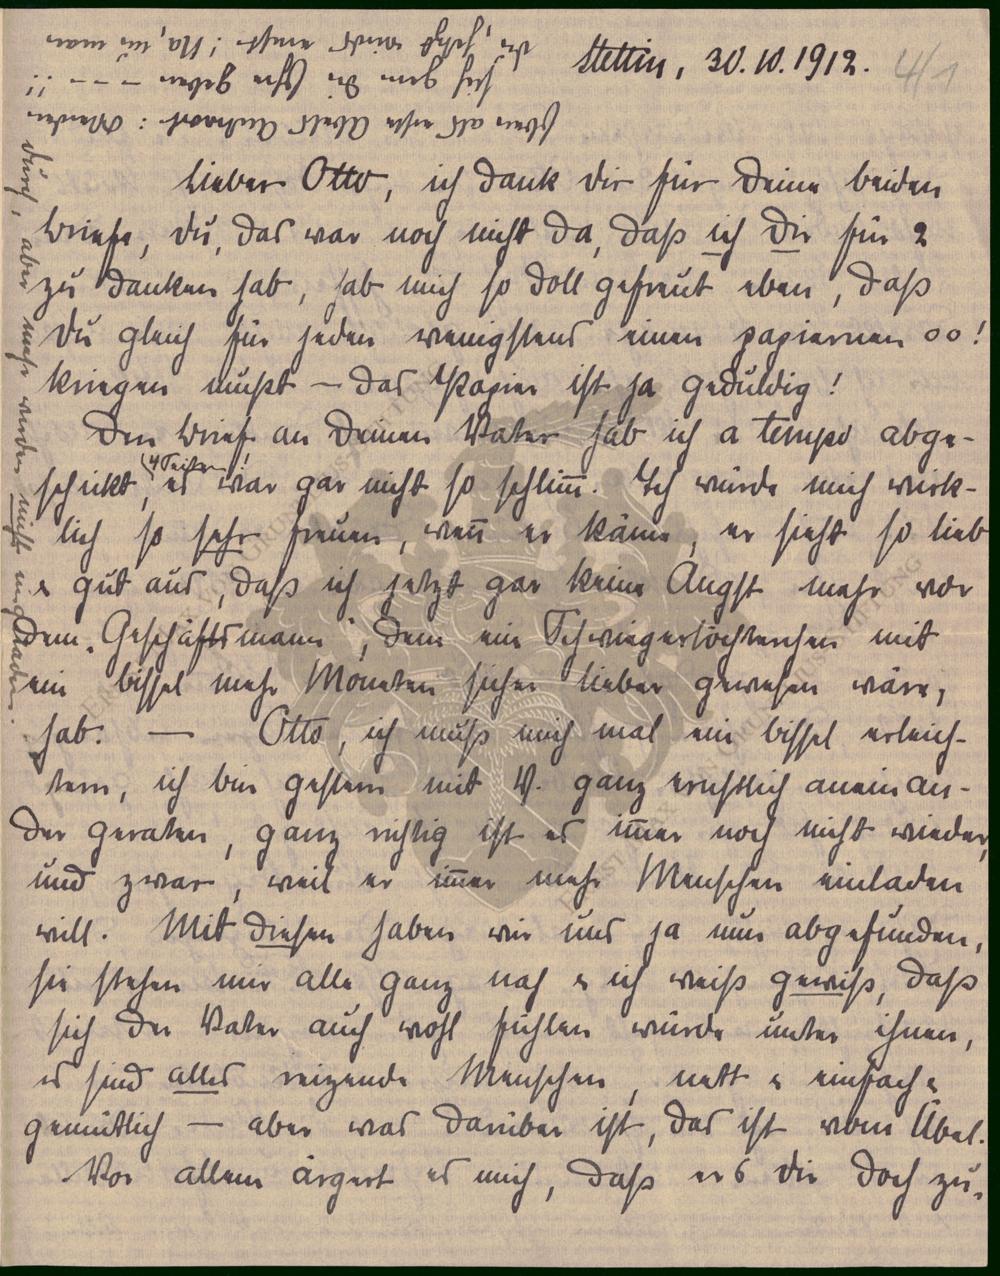 Stettin, 30.10.1912.
4/1
Lieber Otto, ich dank Dir für Deine beiden
Briefe, Du, das war noch nicht da, daß ich Dir für 2
zu danken hab, hab mich so doll gefreut eben, daß
Du gleich für jeden wenigstens einen papiernen oo!
kriegen mußt — das Papier ist ja geduldig!
Den Brief an Deinen Vater hab ich a tempo abge-
(4 Seiten!)
schickt, es war gar nicht so schlim̅. Ich würde mich wirk-
lich so sehr freuen, wen̅ er käme, er sieht so lieb
& gut aus, daß ich jetzt gar keine Angst mehr vor
dem „Geschäftsmann“, dem ein Schwiegertöchterchen mit
ein bissel mehr Moneten sicher lieber gewesen wäre,
hab. — Otto, ich muß mich mal ein bissel erleich-
tern, ich bin gestern mit V. ganz ernstlich aneinan-
der geraten, ganz richtig ist es im̅er noch nicht wieder,
und zwar, weil er im̅er mehr Menschen einladen
will. Mit diesen haben wir uns ja nun abgefunden,
sie stehen mir alle ganz nah & ich weiß gewiß, daß
sich der Vater auch wohl fühlen würde unter ihnen,
es sind alles reizende Menschen, nett & einfach &
gemütlich — aber was darüber ist, das ist vom Übel.
Vor allem ärgert es mich, daß er's Dir doch zu-
durch, aber mehr werden nicht eingeladen.
wenn als erste Antwort:
sich gern die geben – – – !!
jetzt wird ernst! Na, nu man